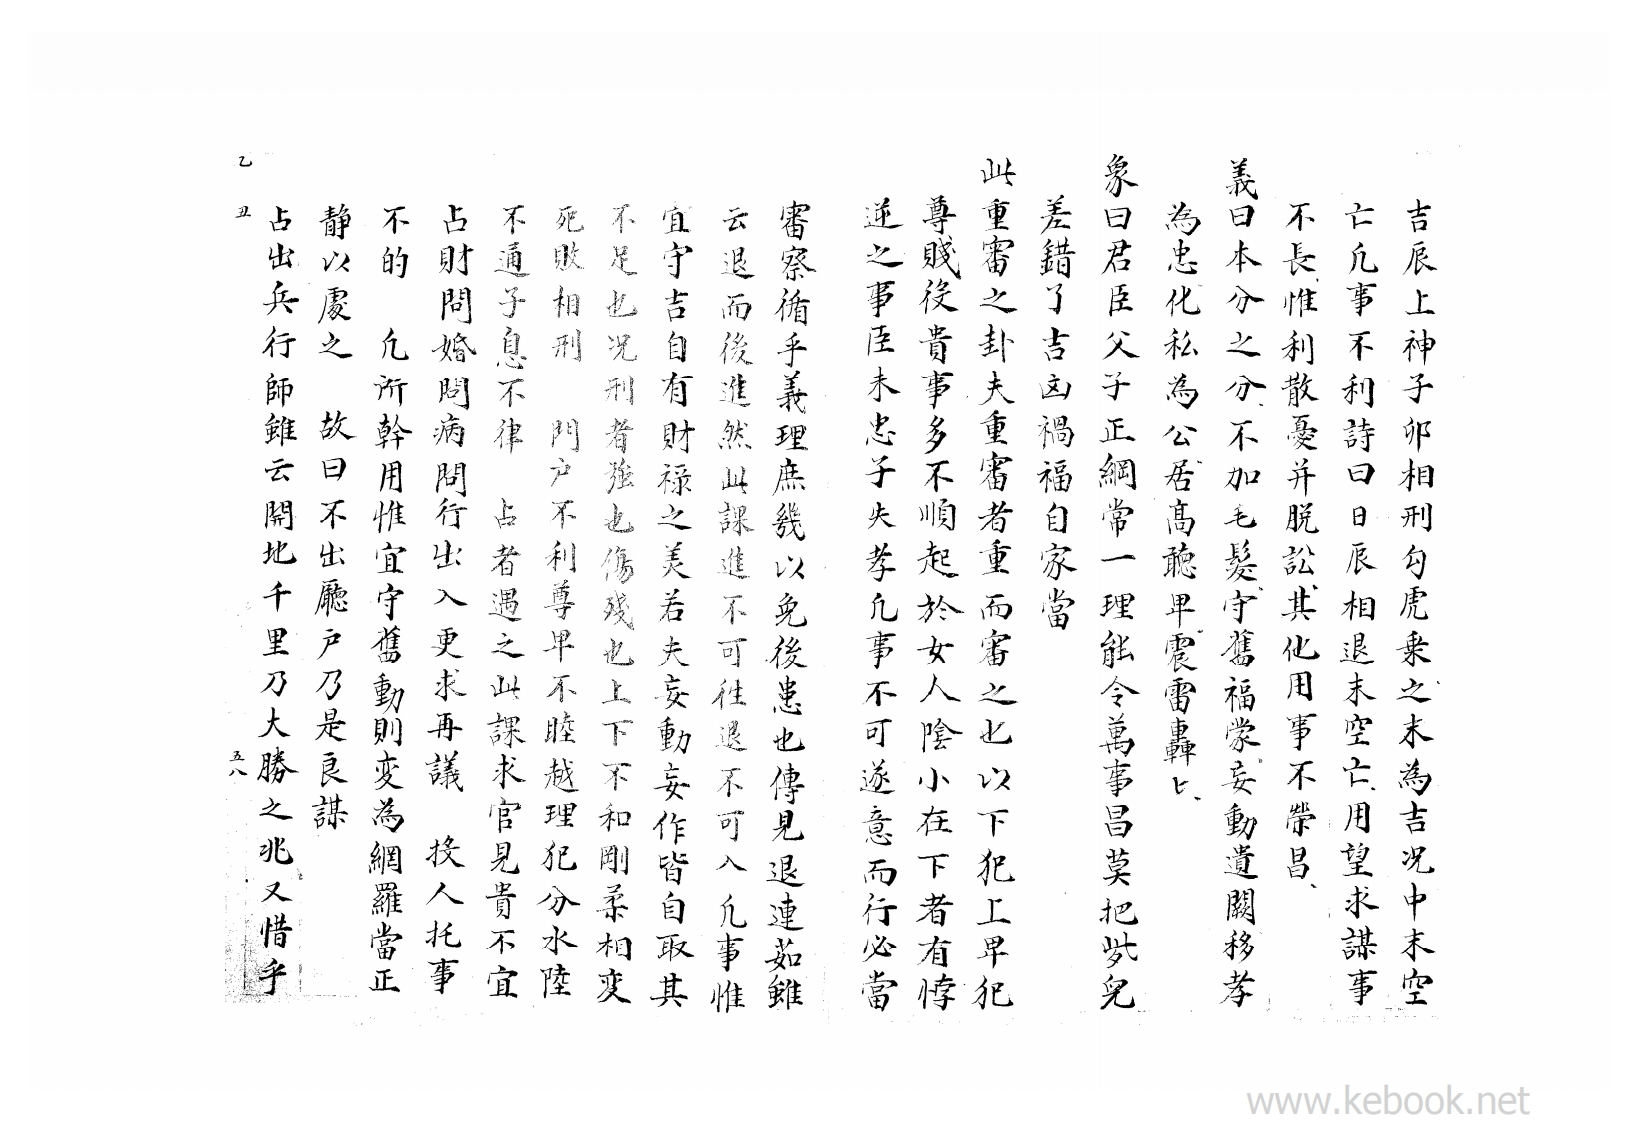 吉辰上神子卯相刑勾虎乗之末為吉况中末空
亡凢事不利詩曰日辰相退末空亡用望求謀事
不長惟利散憂并脱訟其化用事不榮昌
義曰本分之分不加毛髮守舊福蒙妄動遺闕移孝
為忠化私為公居髙聽卑震雷轟匕
象曰君臣父子正綱常一理能令萬事昌莫把此兒
差錯了吉凶禍福自家當
此重審之卦夫重審者重而審之也以下犯上卑犯
尊賤役貴事多不順起於女人陰小在下者有悖
逆之事臣未忠子失孝凢事不可遂意而行必當
審察循乎義理庶幾以免後患也傳見退連茹雖
云退而後進然此課進不可徃退不可入凢事惟
宜守吉自有財禄之美若夫妄動妄作皆自取其
不足也况刑者強也傷殘也上下不和剛柔相変
死敗相刑　門户不利尊卑不睦越理犯分水陸
不通子息不律　占者遇之此課求官見貴不宜
占財問婚問病問行出入更求再議　投人托事
不的　凢所幹用惟宜守舊動則変為網羅當正
静以處之　故曰不出廳户乃是良謀
占出兵行師雖云開地千里乃大勝之兆又惜乎
乙丑
五八
www.kebook.net